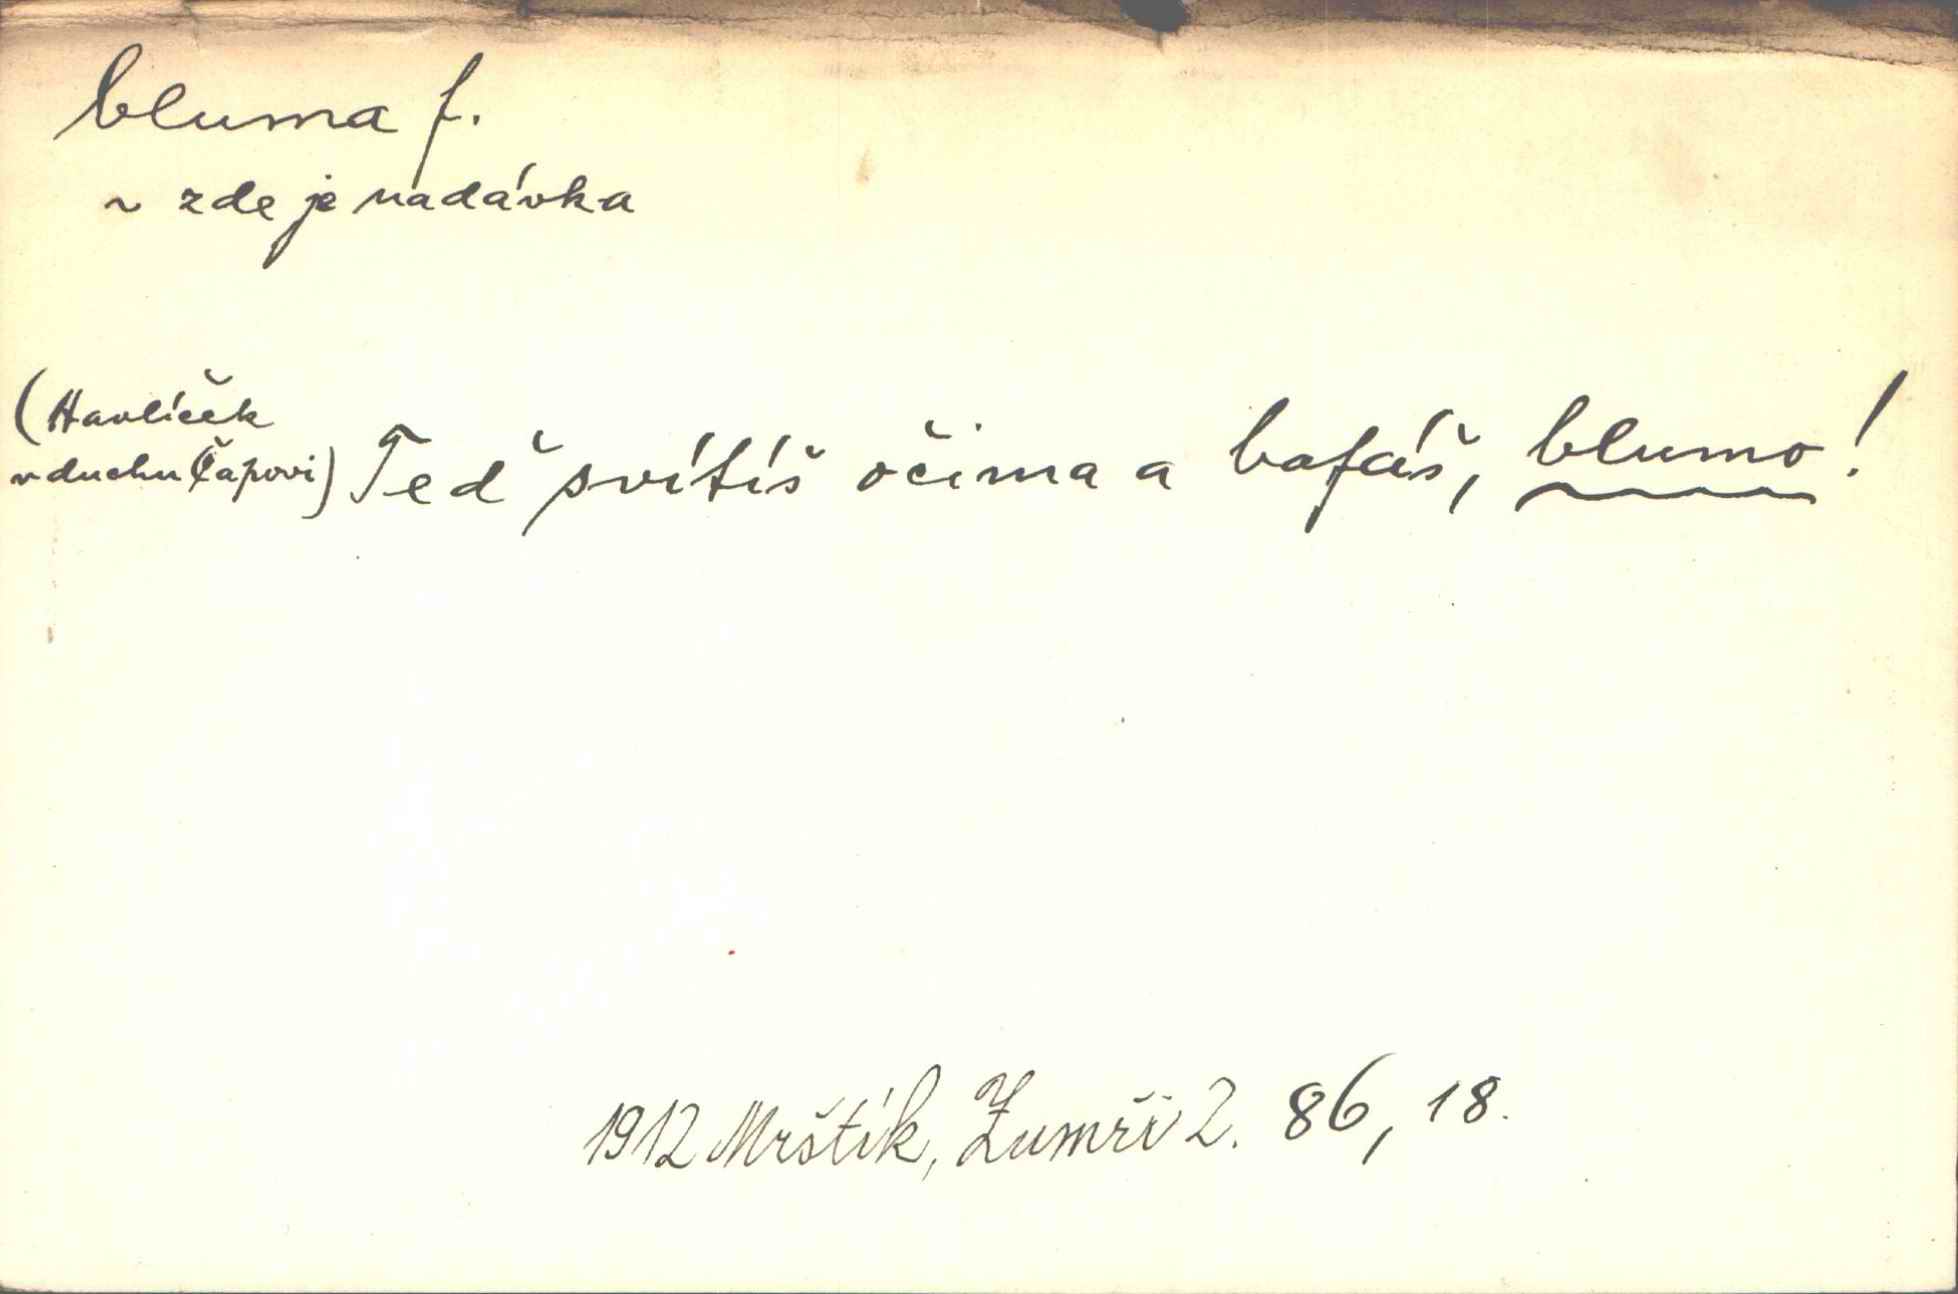 bluma f.
~ zde je nadávka
(Havlíček
v duchu Čapovi) Teď svítíš očima a bafáš, blumo!
1912 Mrštík, Zumři 2. 86, 18.